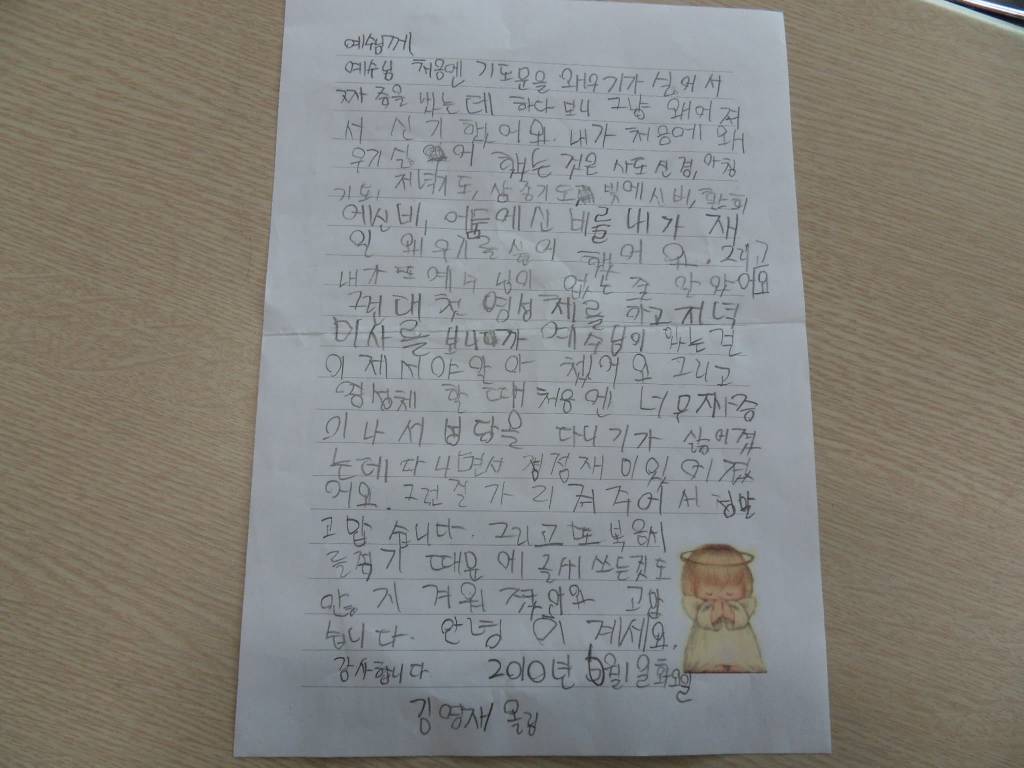 예수님께
예수님 처음엔 기도문을 왜우기가 싫어서
짜증을 냈는데 하다보니 그냥 왜어져
서 신기했어요. 내가 처음에 왜
우기 싫어 했는 것은 사도신경, 아침
기도, 저녁기도, 삼종기도 빛에신비, 환희
에신비, 어둠에신비를 내가 재
일 왜우기를 싫어 했어요. 그리고
내가 또 예수님이 없는 줄 알았어요
근대 첫 영성체를 하고 저녁
미사를 보니까 예수님이 왔는건
이제서야 알아 챘어요 그리고
영성체 할 때 처음엔 너무 짜증
이나서 성당을 다니기가 싫어졌
는데 다니면서 점점 재미있어졌
어요. 그런걸 가리켜주어서 정말
고맙습니다. 그리고 또 복음서
를적기 때문에 글씨 쓰는것도
안 지겨워 졌어요 고맙
습니다. 안녕이 계세요.
감사합니다 2010년 6월1일화요일
김영재 올림